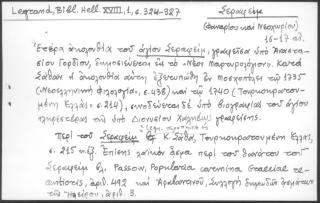 Legrand, Bibl. Hell. XVIII, 1, σ. 324-327
Σεραφείμ
(Φαναρίου καὶ Νεοχωρίου)
16-17 αἰ.
Ἑτέρα ἀκολουθία τοῦ ἁγίου Σεραφείμ, γραφεῖσα ὑπὸ Ἀναστα-
σίου Γορδίου, δημοσιεύεται εἰς τὸ «Νέον Μαρτυρολόγιον». Κατὰ
Σάθαν ἡ ἀκολουθία αὕτη ἐξετυπώθη ἐν Μοσχοπόλει τῷ 1735
(«Νεοελληνικὴ φιλολογία, σ. 438) καὶ τῷ 1740 (Τουρκοκρατου-
μένη Ἑλλὰς σ. 214), συνοδεύεται δὲ ὑπὸ βιογραφίας τοῦ ἁγίου
πληρεστέρας τῆς ὑπὸ Διονυσίου γραφείσης.
Περὶ τοῦ Σεραφεὶμ Κ. Σάθα, Τουρκοκρατουμένη Ἑλλάς,
σ. 215 κ.ἑξ. Ἐπίσης λαϊκὸν ᾆσμα περὶ τοῦ θανάτου τοῦ
Σεραφεὶμ βλ. Passow, Popularia carmina Graeciae re-
centioris, ἀριθ. 492 καὶ Ἀραβαντινοῦ, Συλλογὴ δημωδῶν ᾀσμάτων
τῆς Ἠπείρου, ἀριθ. 3.